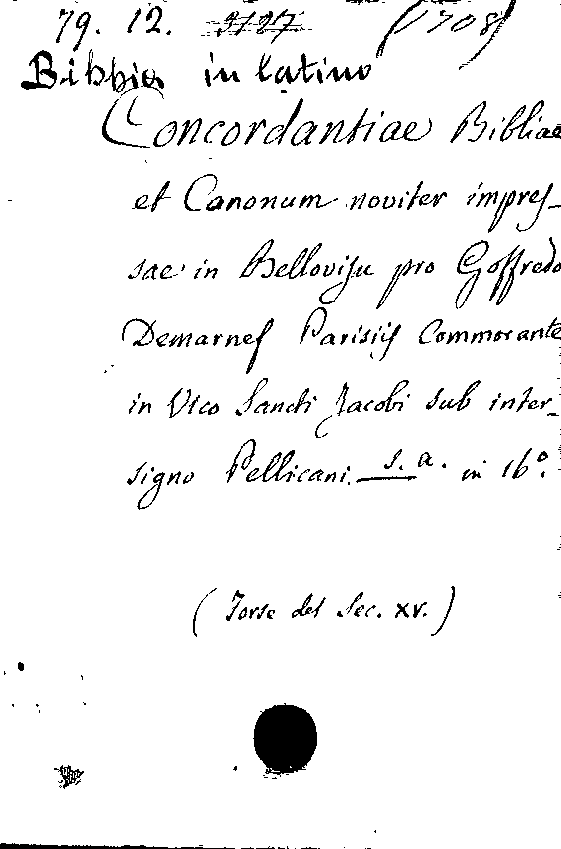 79. 12. 3127 (1708)
Bibbia in latino
Concordantiae Bibliae
et Canonum noviter impres-
sae in Bellovisu pro Goffredo
Demarnes Parisiis Commorante
in Vico Sancti Jacobi sub inter-
signo Pellicani. s. a. in 16º.
(Forse del Sec. XV.)